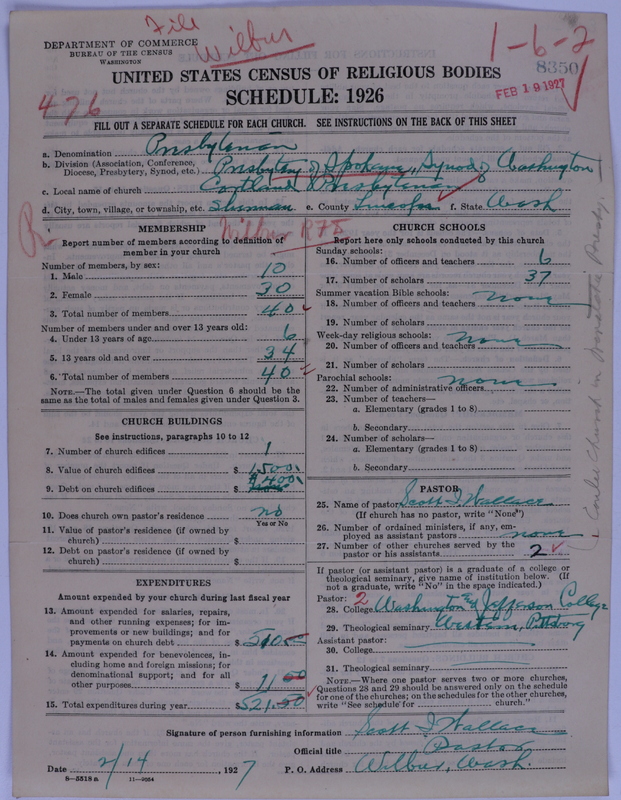 File
Wilbur
1-6-2
8350
FEB 19 1927
476
DEPARTMENT OF COMMERCE
BUREAU OF THE CENSUS
WASHINGTON
UNITED STATES CENSUS OF RELIGIOUS BODIES
SCHEDULE: 1926
FILL OUT A SEPARATE SCHEDULE FOR EACH CHURCH. SEE INSTRUCTIONS ON THE BACK OF THIS SHEET
a. Denomination Presbyterian
b. Division (Association, Conference, Diocese, Presbytery, Synod, etc.) Presbytery of Spokane, Synod of Washington
c. Local name of church Cortland Presbyterian
d. City, town, village, or township, etc. Sherman e. County Lincoln f. State Wash
R
Wilbur R75
MEMBERSHIP
Report number of members according to definition of
member in your church
Number of members, by sex:
1. Male 10
2. Female 30
3. Total number of members 40
Number of members under and over 13 years old:
4. Under 13 years of age 6
5. 13 years old and over 34
6. Total number of members 40
NOTE.—The total given under Question 6 should be the
same as the total of males and females given under Question 3.
CHURCH BUILDINGS
See instructions, paragraphs 10 to 12
7. Number of church edifices 1
8. Value of church edifices $ 1,500
9. Debt on church edifices $ 400
10. Does church own pastor's residence no
Yes or No
11. Value of pastor's residence (if owned by
church) $
12. Debt on pastor's residence (if owned by
church) $
EXPENDITURES
Amount expended by your church during last fiscal year
13. Amount expended for salaries, repairs,
and other running expenses; for im-
provements or new buildings; and for
payments on church debt $ 510.00
14. Amount expended for benevolences, in-
cluding home and foreign missions; for
denominational support; and for all
other purposes $ 11 00
15. Total expenditures during year $ 521.00
CHURCH SCHOOLS
Report here only schools conducted by this church
Sunday schools:
16. Number of officers and teachers 6
17. Number of scholars 37
Summer vacation Bible schools:
18. Number of officers and teachers none
19. Number of scholars
Week-day religious schools:
20. Number of officers and teachers none
21. Number of scholars
Parochial schools:
22. Number of administrative officers none
23. Number of teachers—
a. Elementary (grades 1 to 8)
b. Secondary
24. Number of scholars—
a. Elementary (grades 1 to 8)
b. Secondary
PASTOR
25. Name of pastor Scott I. Wallace
(If church has no pastor, write "None")
26. Number of ordained ministers, if any, em-
ployed as assistant pastors none
27. Number of other churches served by the
pastor or his assistants 2
If pastor (or assistant pastor) is a graduate of a college or
theological seminary, give name of institution below. (If
not a graduate, write "No" in the space indicated.)
Pastor: 2
28. College Washington & Jefferson College
29. Theological seminary Western, Pittsburg
Assistant pastor:
30. College
31. Theological seminary
NOTE.—Where one pastor serves two or more churches,
Questions 28 and 29 should be answered only on the schedule
for one of the churches; on the schedules for the other churches,
write "See schedule for church."
Signature of person furnishing information Scott I. Wallace
Official title Pastor
Date 2/14, 1927 P. O. Address Wilbur, Wash
S—5518 a 11—9264